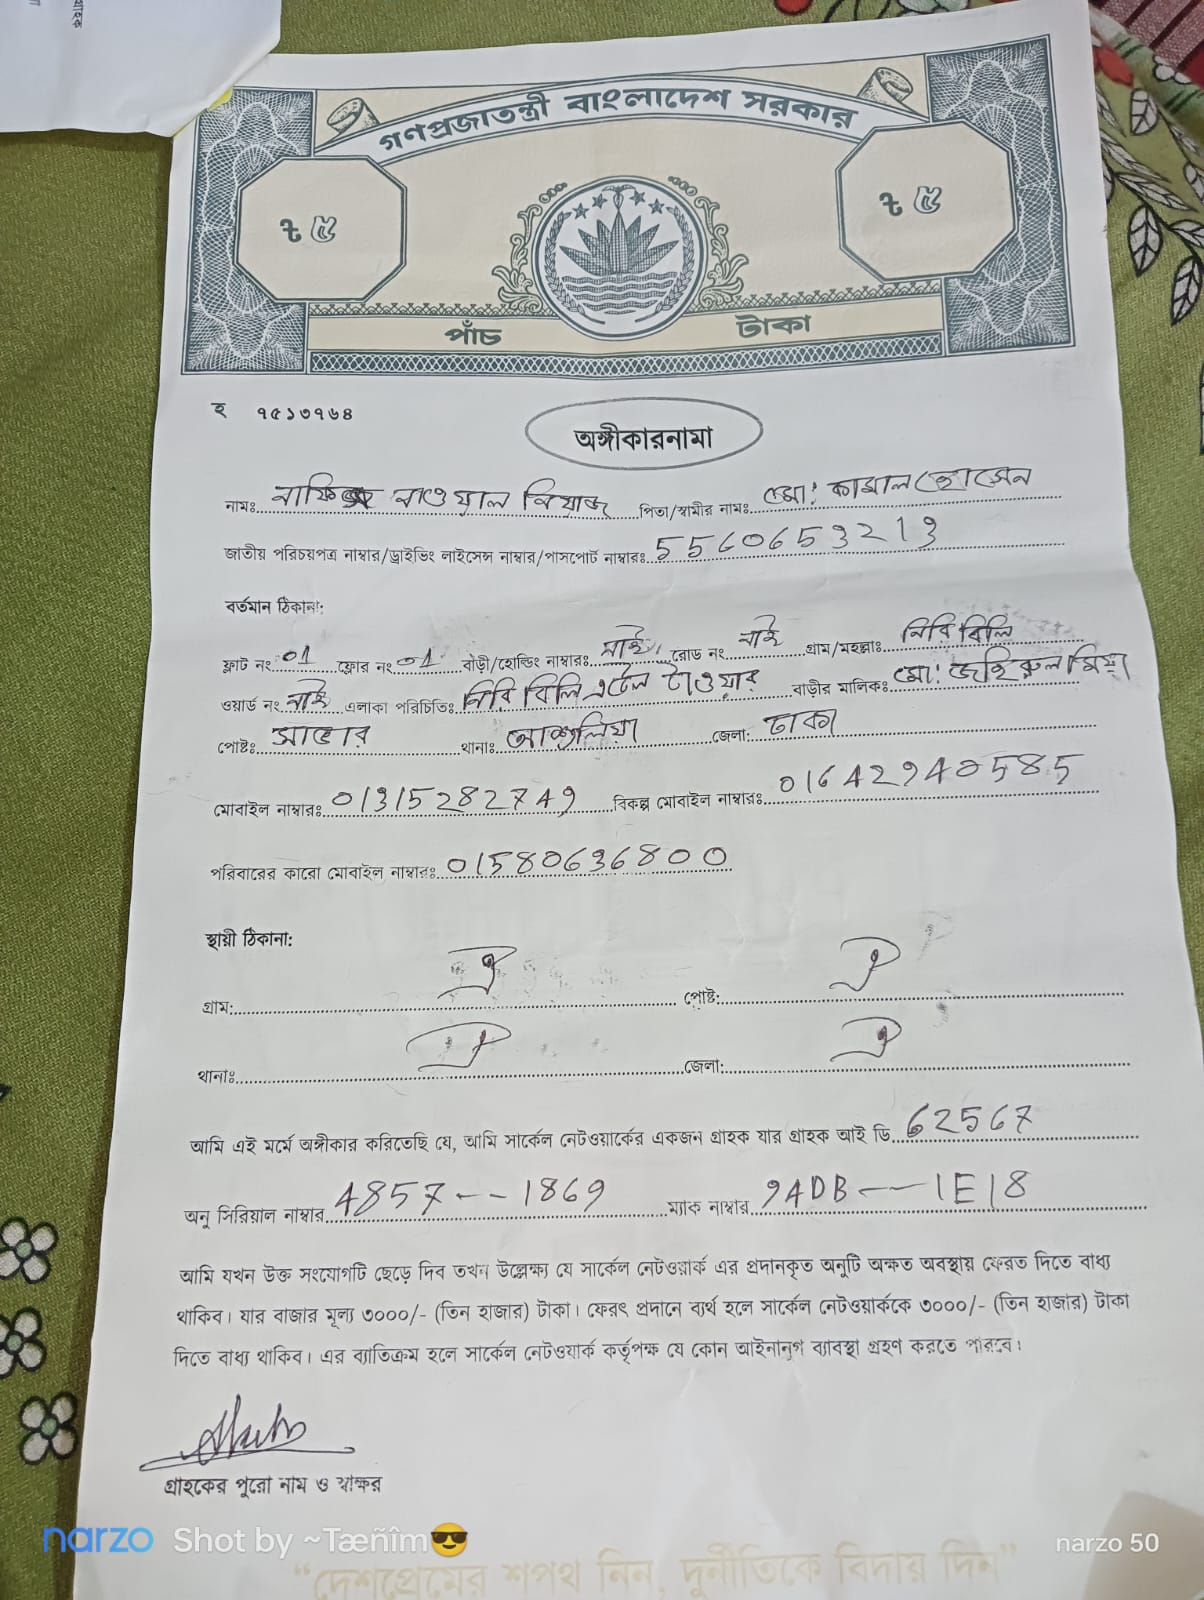 গণপ্রজাতন্ত্রী বাংলাদেশ সরকার
৳ ৫ ৳ ৫
পাঁচ টাকা
হ ৭৫১৩৭৬৪
অঙ্গীকারনামা
নামঃ নাফিজ নাওয়াল নিয়াজ পিতা/স্বামীর নামঃ মো: কামাল হোসেন
জাতীয় পরিচয়পত্র নাম্বার/ড্রাইভিং লাইসেন্স নাম্বার/পাসপোর্ট নাম্বারঃ 5560653213
বর্তমান ঠিকানা:
ফ্লাট নং 01 ফ্লোর নং 01 বাড়ী/হোল্ডিং নাম্বারঃ নাই রোড নং নাই গ্রাম/মহল্লাঃ নিরিবিলি
ওয়ার্ড নং নাই এলাকা পরিচিতিঃ নিরিবিলি এটেল টাওয়ার বাড়ীর মালিকঃ মো: জহিরুল মিয়া
পোষ্টঃ সাভার থানাঃ আশুলিয়া জেলা: ঢাকা
মোবাইল নাম্বারঃ 01315282749 বিকল্প মোবাইল নাম্বারঃ 01642940585
পরিবারের কারো মোবাইল নাম্বারঃ 01580636800
স্থায়ী ঠিকানা:
গ্রাম: পোষ্ট:
থানাঃ জেলা:
আমি এই মর্মে অঙ্গীকার করিতেছি যে, আমি সার্কেল নেটওয়ার্কের একজন গ্রাহক যার গ্রাহক আই ডি 62567
অনু সিরিয়াল নাম্বার 4857--1869 ম্যাক নাম্বার 9ADB--1E18
আমি যখন উক্ত সংযোগটি ছেড়ে দিব তখন উল্লেক্ষ্য যে সার্কেল নেটওয়ার্ক এর প্রদানকৃত অনুটি অক্ষত অবস্থায় ফেরত দিতে বাধ্য
থাকিব। যার বাজার মূল্য ৩০০০/- (তিন হাজার) টাকা। ফেরৎ প্রদানে ব্যর্থ হলে সার্কেল নেটওয়ার্ককে ৩০০০/- (তিন হাজার) টাকা
দিতে বাধ্য থাকিব। এর ব্যাতিক্রম হলে সার্কেল নেটওয়ার্ক কর্তৃপক্ষ যে কোন আইনানুগ ব্যাবস্থা গ্রহণ করতে পারবে।
গ্রাহকের পুরো নাম ও স্বাক্ষর
narzo Shot by ~Tæñîm😎 narzo 50
“দেশপ্রেমের শপথ নিন, দুর্নীতিকে বিদায় দিন”